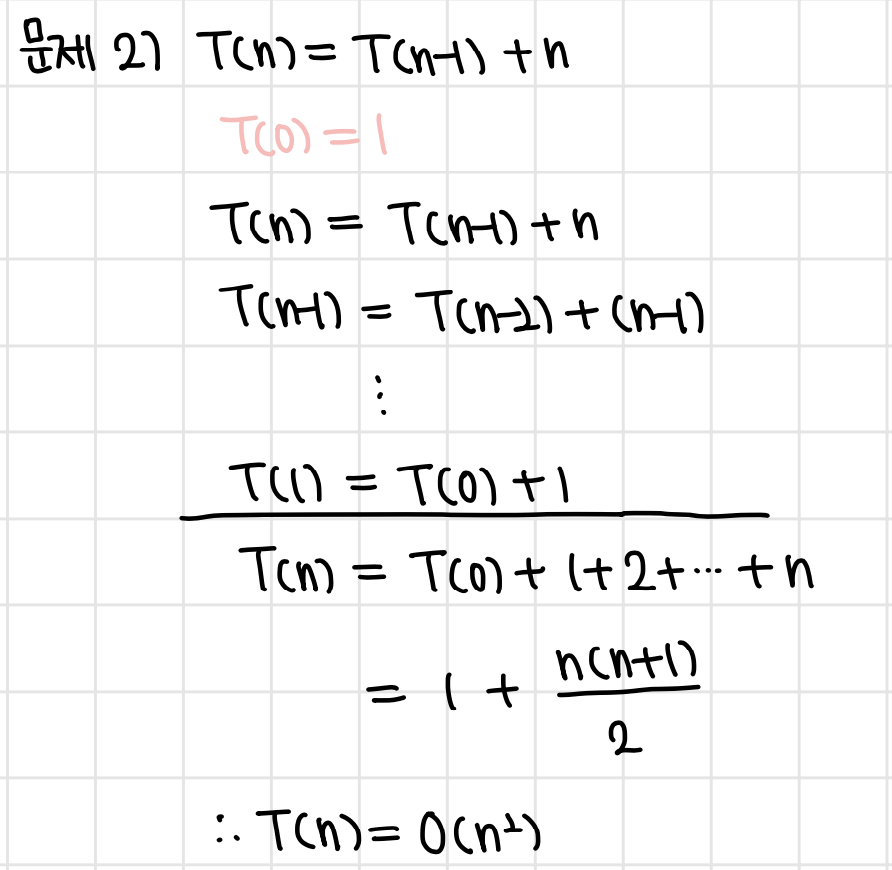 문제 2) T(n) = T(n-1) + n
T(0) = 1
T(n) = T(n-1) + n
T(n-1) = T(n-2) + (n-1)
⋮
T(1) = T(0) + 1
T(n) = T(0) + 1 + 2 + ⋯ + n
= 1 + n(n+1)/2
∴ T(n) = O(n²)